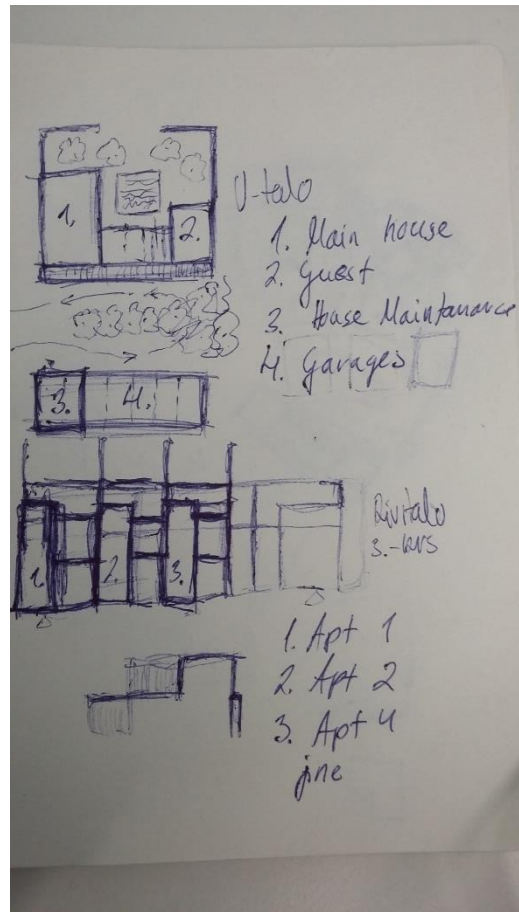 1.
2.
U-talo
1. Main house
2. Guest
3. House Maintanance
4. Garages
3.
4.
Rivitalo
3.-krs
1.
2.
3.
1. Apt 1
2. Apt 2
3. Apt 4
jne